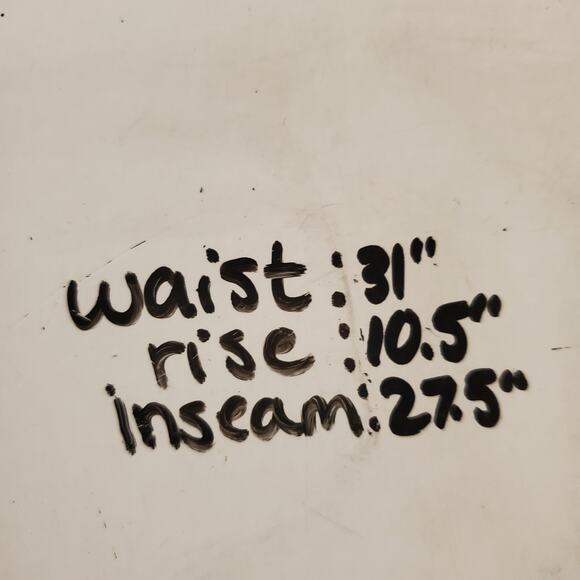 waist: 31"
rise: 10.5"
inseam: 27.5"